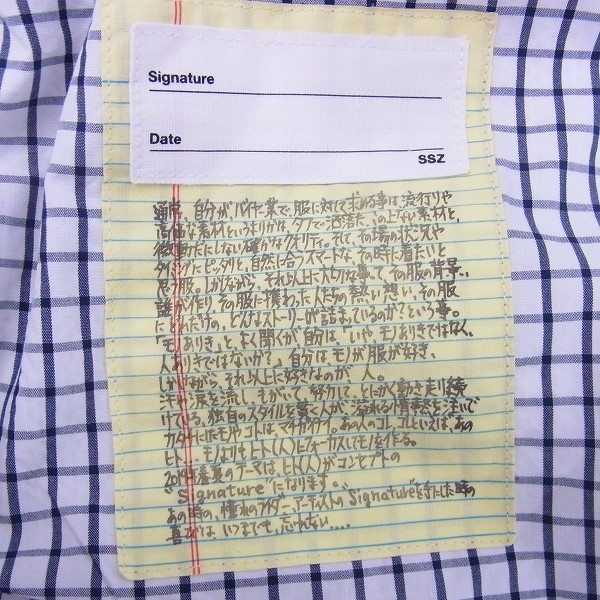 Signature
Date
SSZ
通常、自分がバイヤー業で、服に対して求める事は流行りや
高価な素材というよりかは、タフで洒落た、この上ない素材と、
微動だにしない確かなクオリティ。そして、その場の状況や
タイミングにピッタリと、自然に合うスマートな、その時に着たいと
思う服。しかしながら、それ以上に大切な事って、その服の背景。
誰が作り、その服に携わった人たちの熱い想い、その服
にどれだけの、どんなストーリーが詰まっているのか?という事。
「モノありき」と、よく聞くが自分は、「いや、モノありきではなく、
人ありきではないか?」、自分はモノが服が好き、
しかしながら、それ以上に好きなのが、人。
汗や涙を流し、もがいて、努力して、とにかく動き走り続
けている、独自のスタイルを貫く人が、溢れる情熱を注いで
カタチにしたモノやコトは、マチガイナイ。あの人のコレ、コレといえば、あの
ヒト。モノよりもヒト(人)にフォーカスしてモノを作る。
2014春夏のテーマは、ヒト(人)がコンセプトの
"Signature"になります。
あの時の、憧れのライダー、アーティストのSignatureを手にした時の
喜びは、いつまでも、忘れない....